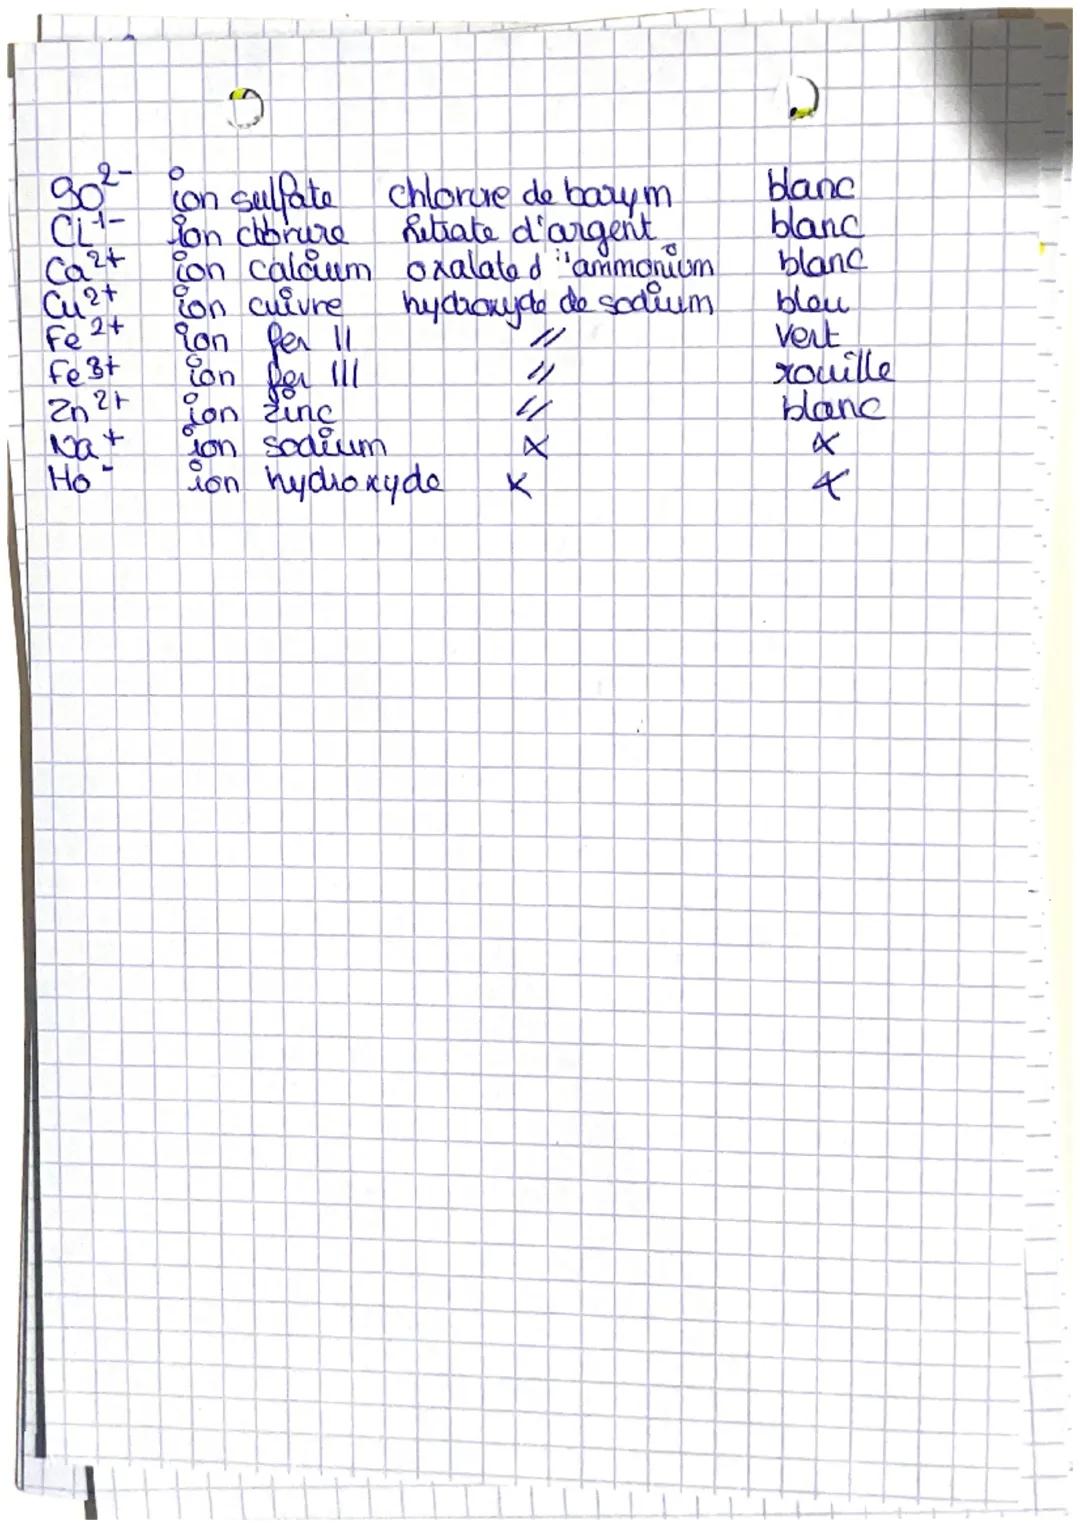 SO²⁻ ion sulfate chlorure de barym blanc
CL¹⁻ ion chlorure nitrate d'argent blanc
Ca²⁺ ion calcium oxalate d'ammonium blanc
Cu²⁺ ion cuivre hydroxyde de sodium bleu
Fe²⁺ ion fer II // vert
Fe³⁺ ion fer III // rouille
Zn²⁺ ion zinc // blanc
Na⁺ ion sodium x x
Ho⁻ ion hydroxyde x x